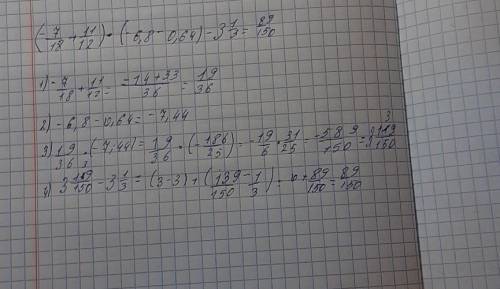 (-7/18 + 11/12) · (-6,8 - 0,64) - 3 1/3 = 89/150
1) -7/18 + 11/12 = -14+33/36 = 19/36
2) -6,8 - 0,64 = -7,44
3) 19/36 · (7,44) = 19/36 · (-186/25) = -19/6 · 31/25 = -589/150 = 3 139/150
4) 3 139/150 - 3 1/3 = (3-3) + (139/150 - 1/3) = 0 + 89/150 = 89/150